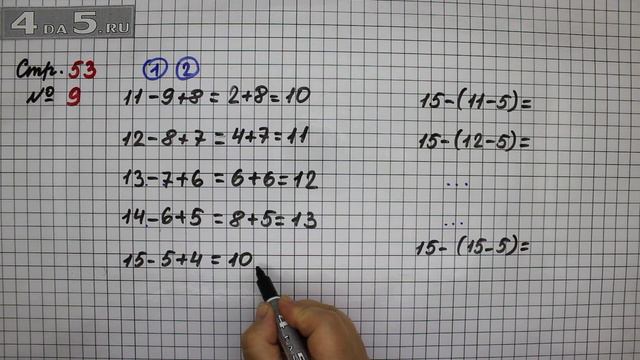 4 DA 5.RU
Стр. 53
№ 9
1 2
11-9+8=2+8=10
12-8+7=4+7=11
13-7+6=6+6=12
14-6+5=8+5=13
15-5+4=10
15-(11-5)=
15-(12-5)=
...
...
15-(15-5)=